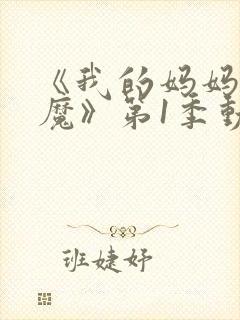 《我的妈妈
魔》第1季動
班婕妤